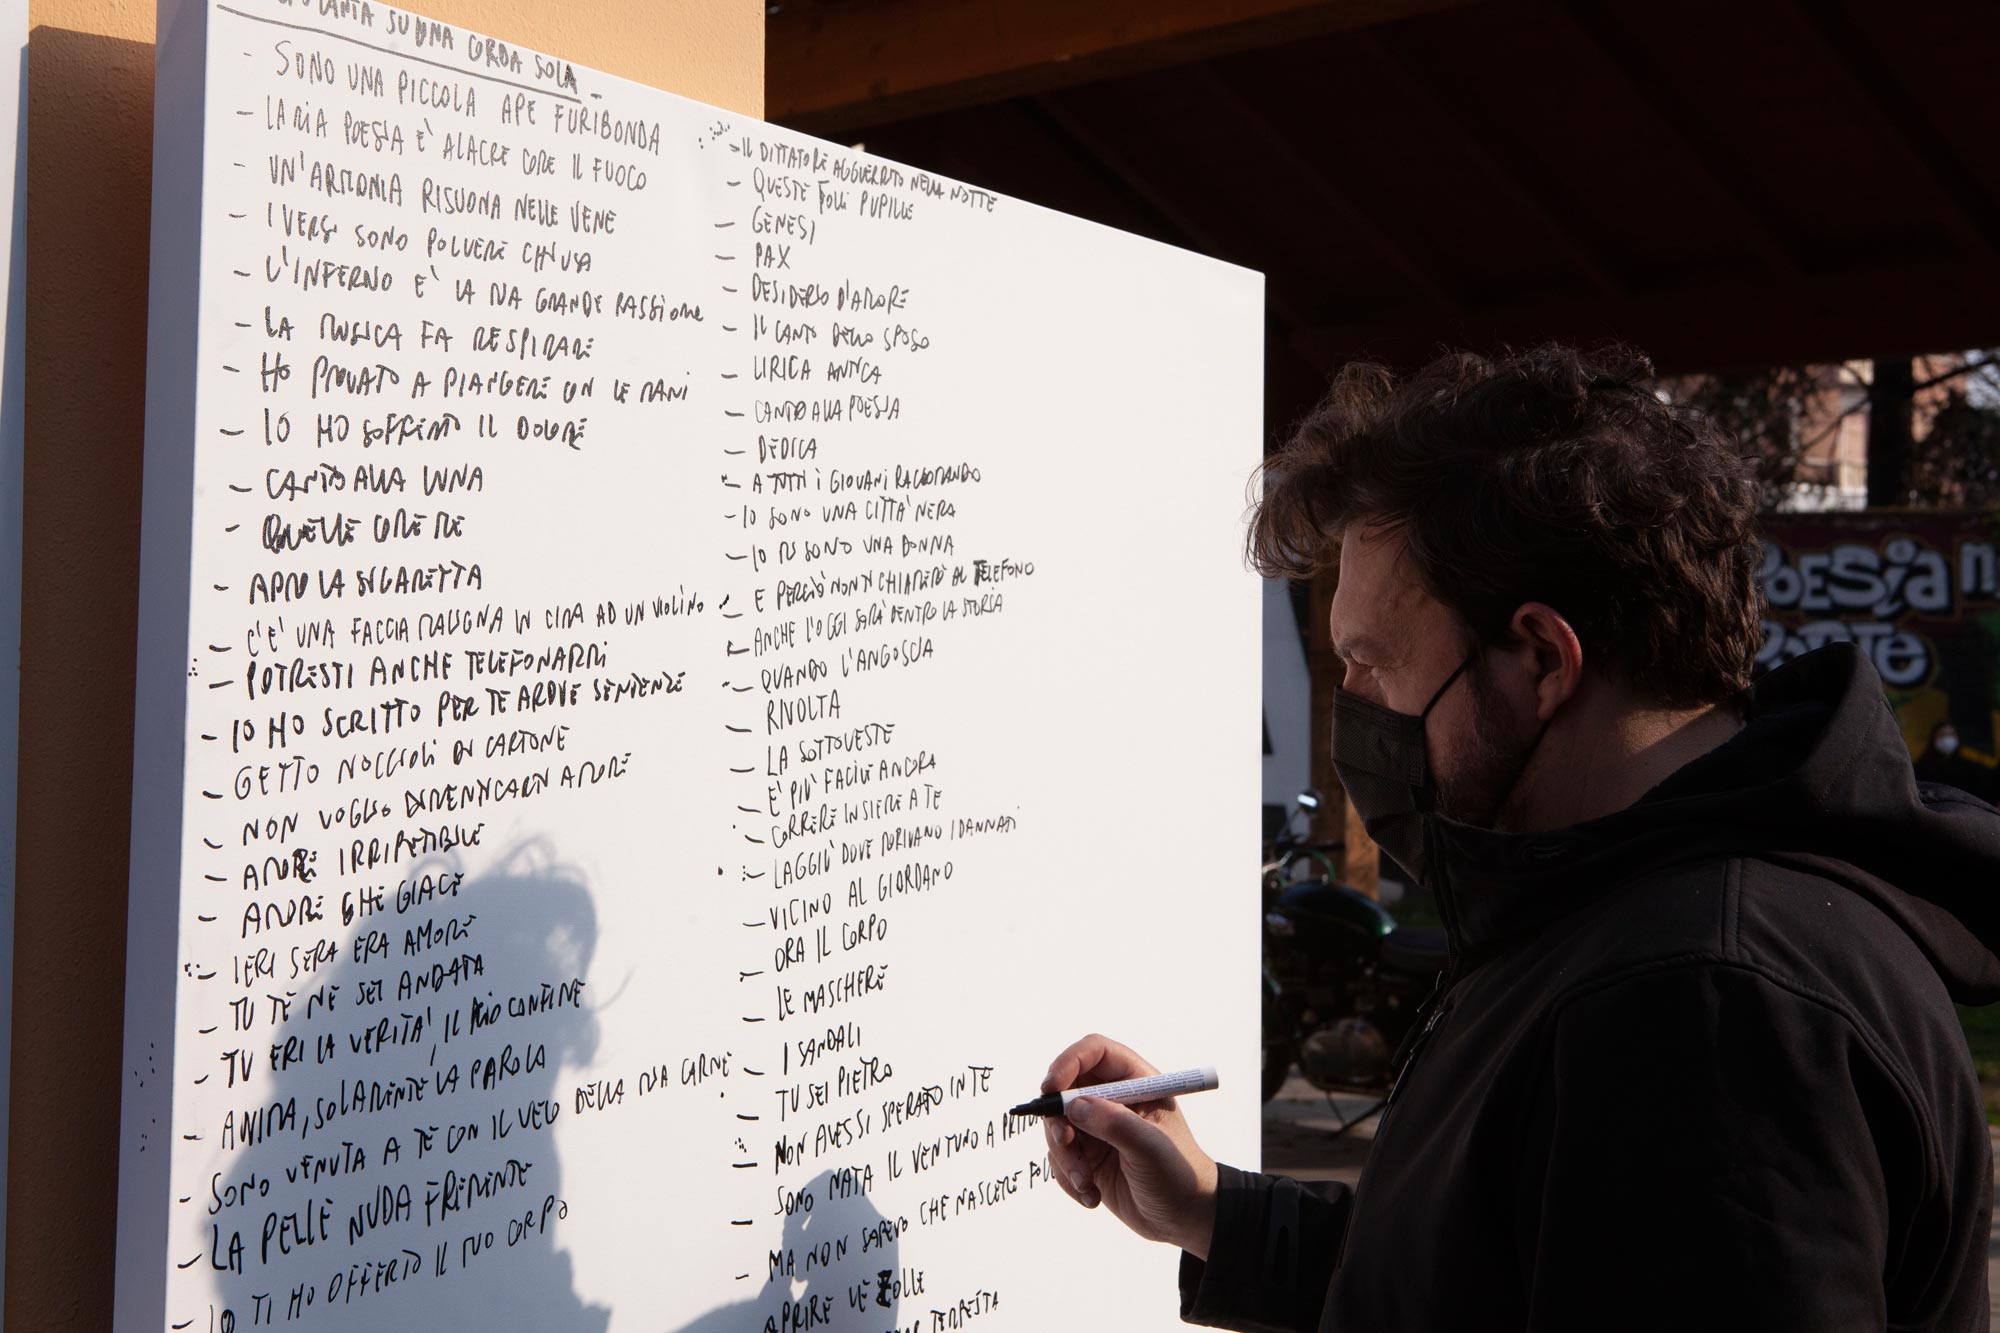 SU UNA CORDA SOLA -
- SONO UNA PICCOLA APE FURIBONDA
- LA MIA POESIA E' ALACRE COME IL FUOCO
- UN'ARMONIA RISUONA NELLE VENE
- I VERSI SONO POLVERE CHIUSA
- L'INFERNO E' LA MIA GRANDE PASSIONE
- LA MUSICA FA RESPIRARE
- HO PROVATO A PIANGERE CON LE MANI
- IO HO SOFFERTO IL DOLORE
- CANTO ALLA LUNA
- QUELLE COME ME
- APRO LA SIGARETTA
- C'E' UNA FACCIA MALIGNA IN CIMA AD UN VIOLINO
- POTRESTI ANCHE TELEFONARMI
- IO HO SCRITTO PER TE AROVE SENTENZE
- GETTO NOCCIOLI DI CARTONE
- NON VOGLIO DIMENTICARTI AMORE
- AMORE IRRIPETIBILE
- AMORE CHE GIACE
- IERI SERA ERA AMORE
- TU TE NE SEI ANDATA
- TU ERI LA VERITA', IL MIO CONFINE
- ANIMA, SOLAMENTE LA PAROLA
- SONO VENUTA A TE CON IL VELO DELLA MIA CARNE
- LA PELLE NUDA FREMENTE
- IO TI HO OFFERTO IL MIO CORPO
- IL DITTATORE AGGUERRITO NELLA NOTTE
- QUESTE FOLLI PUPILLE
- GENESI
- PAX
- DESIDERIO D'AMORE
- IL CANTO DELLO SPOSO
- LIRICA ANTICA
- CANTO ALLA POESIA
- DEDICA
- A TUTTI I GIOVANI RACCOMANDO
- IO SONO UNA CITTA' NERA
- IO MI SONO UNA DONNA
- E PERCIÒ NON TI CHIAMERÒ AL TELEFONO
- ANCHE L'OGGI SARÀ DENTRO LA STORIA
- QUANDO L'ANGOSCIA
- RIVOLTA
- LA SOTTOVESTE
- E' PIU' FACILE ANCORA
- CORRERE INSIEME A TE
- LAGGIU' DOVE MORIVANO I DANNATI
- VICINO AL GIORDANO
- ORA IL CORPO
- LE MASCHERE
- I SANDALI
- TU SEI PIETRO
- NON AVESSI SPERATO IN TE
- SONO NATA IL VENTUNO A
MA NON SAPEVO CHE NASCERE
- APRIRE LE ZOLLE
TEMPESTA
POESIA